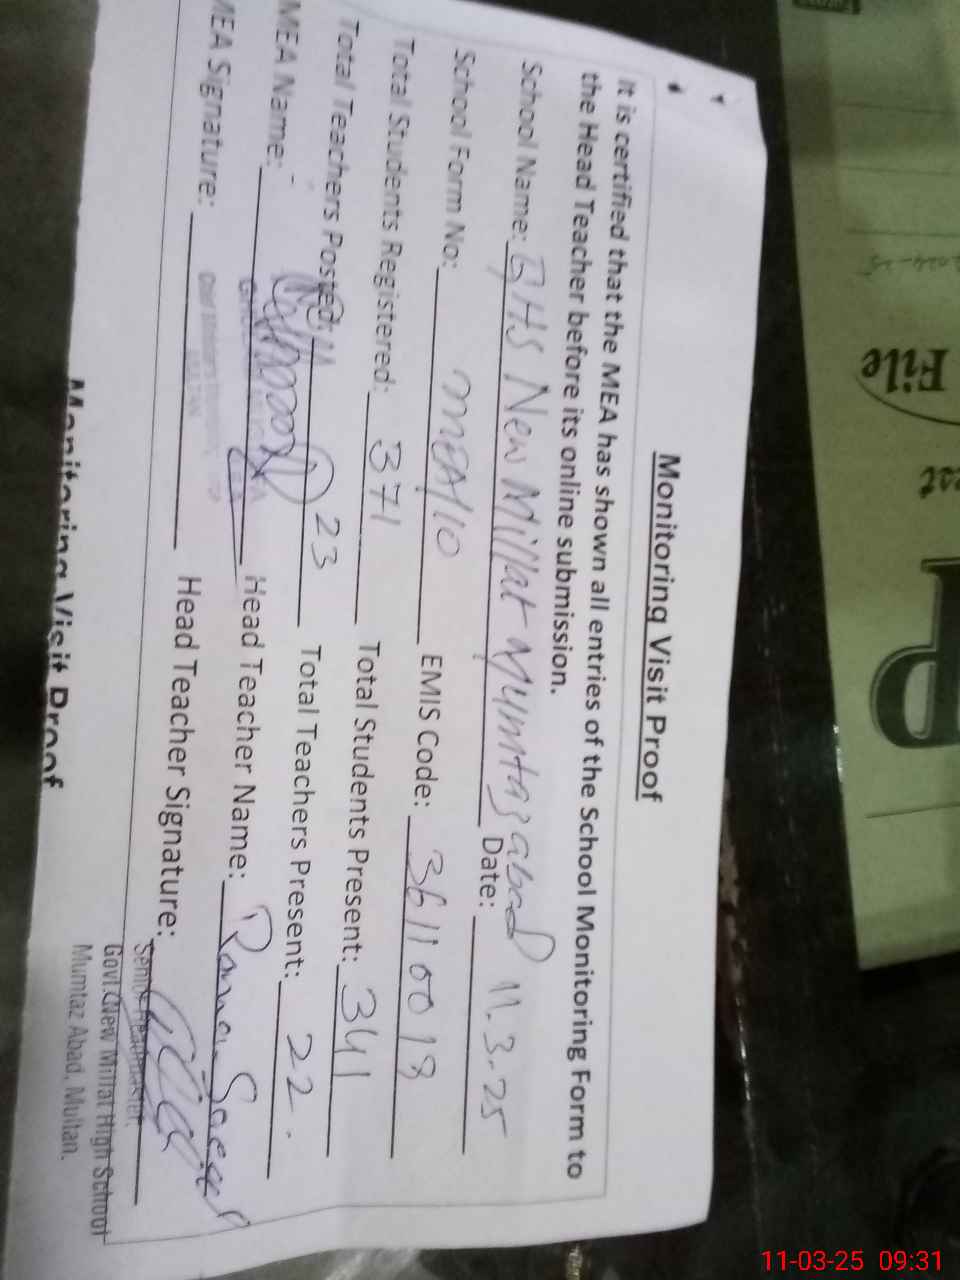 Monitoring Visit Proof
It is certified that the MEA has shown all entries of the School Monitoring Form to
the Head Teacher before its online submission.
School Name: GHS New Millat Mumtazabad Date: 11.3.25
School Form No: MEA/10 EMIS Code: 36110018
Total Students Registered: 371 Total Students Present: 341
Total Teachers Posted: 23 Total Teachers Present: 22.
MEA Name: Head Teacher Name: Rana Saeed
MEA Signature: Head Teacher Signature:
Senior Headmaster
Govt. New Millat High School
Mumtaz Abad, Multan.
Monitoring Visit Proof
File
P
11-03-25 09:31